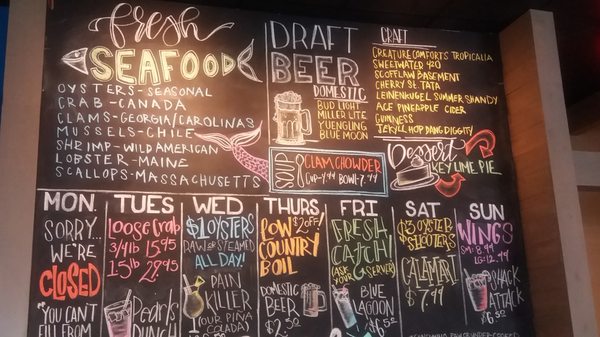 fresh
SEAFOOD
OYSTERS-SEASONAL
CRAB-CANADA
CLAMS-GEORGIA/CAROLINAS
MUSSELS-CHILE
SHRIMP-WILD AMERICAN
LOBSTER-MAINE
SCALLOPS-MASSACHUSETTS
DRAFT
BEER
DOMESTIC
BUD LIGHT
MILLER LITE
YUENGLING
BLUE MOON
CRAFT
CREATURE COMFORTS TROPICALIA
SWEETWATER 420
SCOFFLAW BASEMENT
CHERRY ST. TATA
LEINENKUGEL SUMMER SHANDY
ACE PINEAPPLE CIDER
GUINNESS
JEKYLL HOP DANG DIGGITY
SOUP
CLAM CHOWDER
CUP-4.99 BOWL-7.99
Dessert
KEY LIME PIE
MON.
SORRY...
WE'RE
CLOSED
"YOU CAN'T
FILL FROM
TUES
loose crab
3/4lb 15.95
1.5lb 28.95
Pearl's
Punch
WED
$1 OYSTERS
RAW OR STEAMED
ALL DAY!
PAIN
KILLER
(OUR PIÑA
COLADA)
THURS
$2 OFF!
LOW
COUNTRY
BOIL
DOMESTIC
BEER
$2.50
FRI
FRESH
CATCH!
(ASK YOUR
SERVER)
BLUE
LAGOON
$6.50
SAT
$3 OYSTER
SHOOTERS
CALAMARI
$7.99
SUN
WINGS
SM: 8.99
LG: 12.99
SHARK
ATTACK